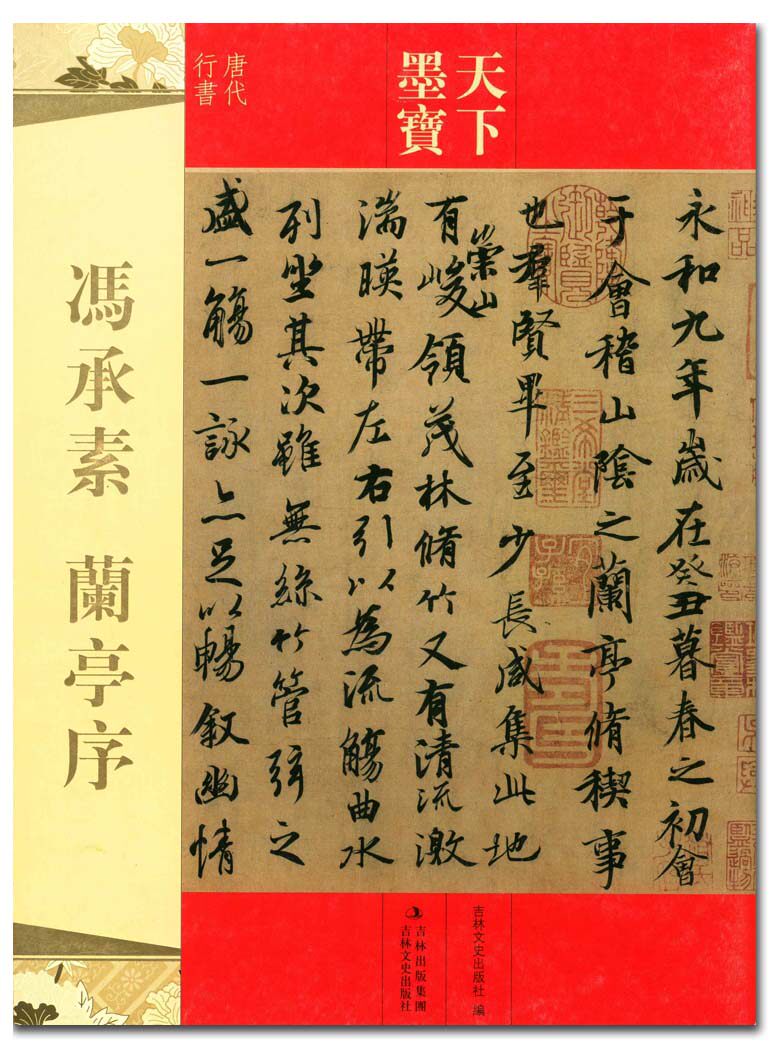 天下
墨寶
唐代
行書
馮承素 蘭亭序
永和九年歲在癸丑暮春之初會
于會稽山陰之蘭亭脩稧事
也羣賢畢至少長咸集此地
有崇山峻領茂林脩竹又有清流激
湍暎帶左右引以為流觴曲水
列坐其次雖無絲竹管弦之
盛一觴一詠亦足以暢叙幽情
吉林文史出版社 編
吉林出版集團
吉林文史出版社